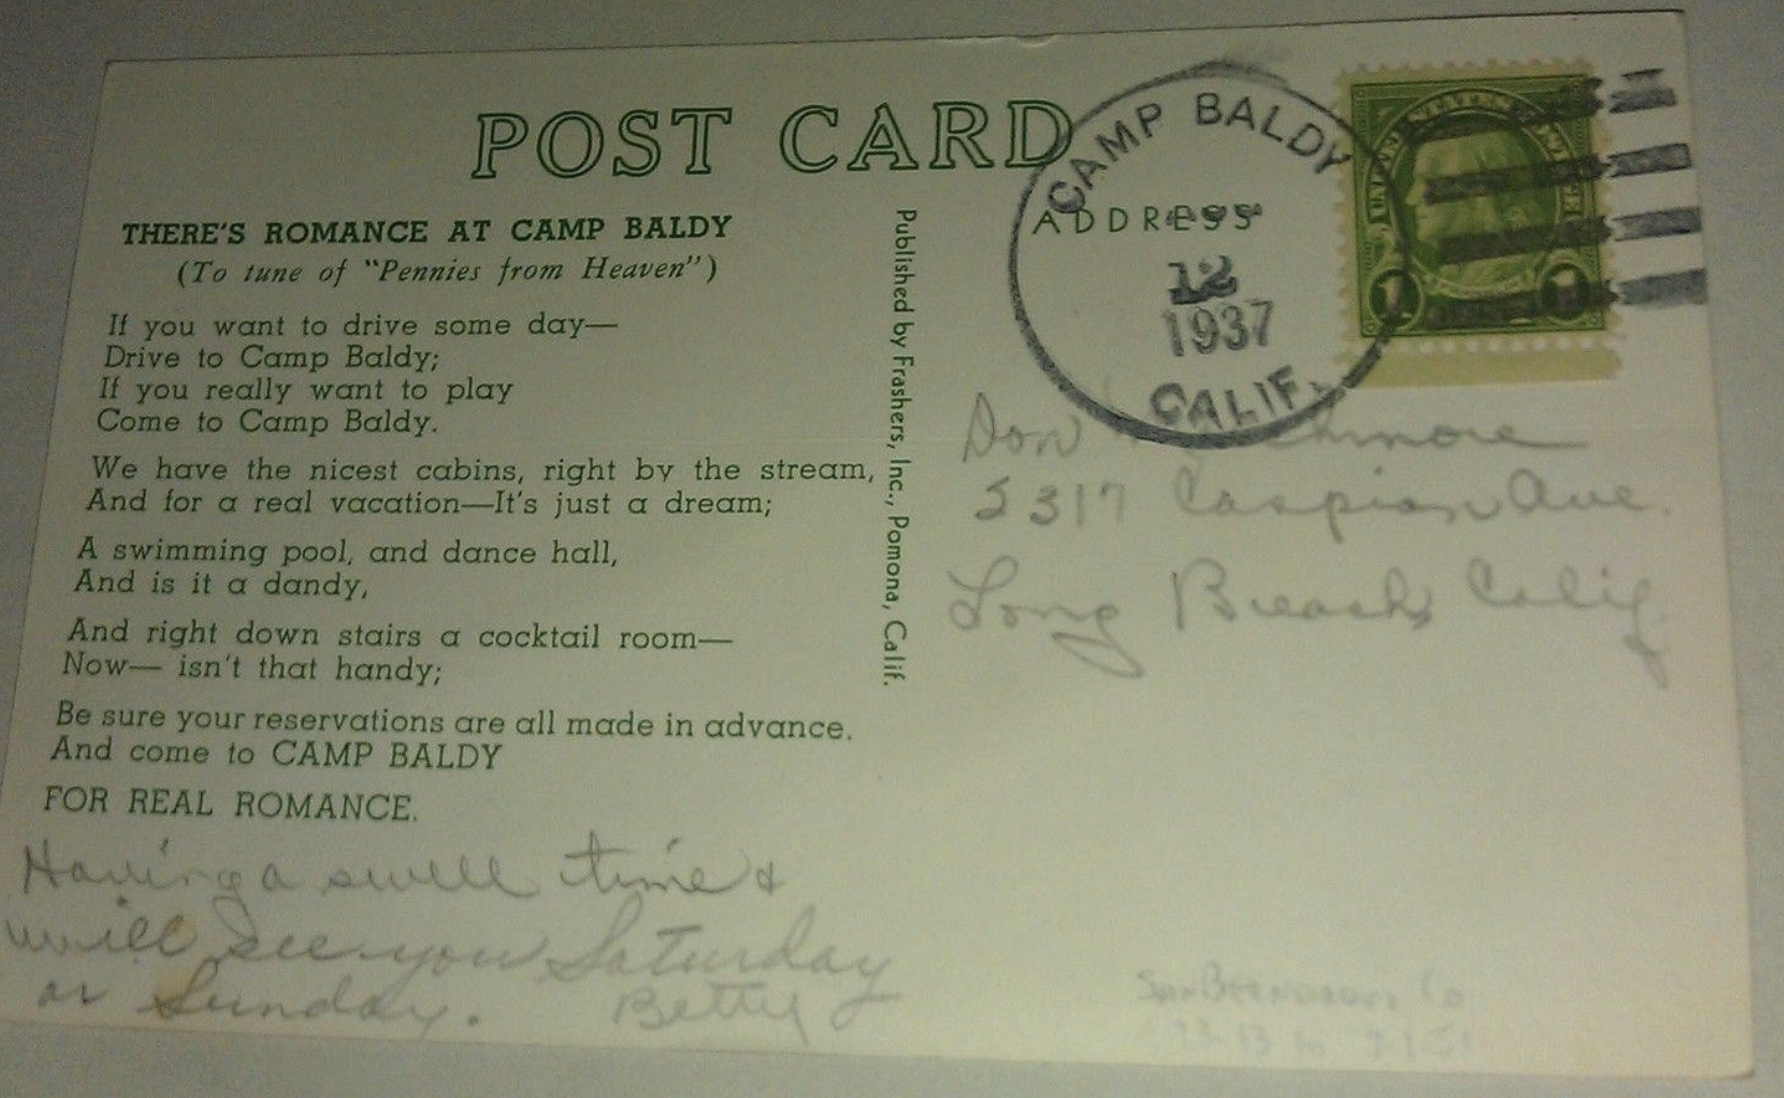 POST CARD
THERE'S ROMANCE AT CAMP BALDY
(To tune of "Pennies from Heaven")
If you want to drive some day—
Drive to Camp Baldy;
If you really want to play
Come to Camp Baldy.
We have the nicest cabins, right by the stream,
And for a real vacation—It's just a dream;
A swimming pool, and dance hall,
And is it a dandy,
And right down stairs a cocktail room—
Now— isn't that handy;
Be sure your reservations are all made in advance.
And come to CAMP BALDY
FOR REAL ROMANCE.
Having a swell time &
will see you Saturday
or Sunday. Betty
Published by Frashers, Inc., Pomona, Calif.
CAMP BALDY
ADDRESS
12
1937
CALIF.
1 1
Don
5317 Caspian Ave.
Long Beach, Calif.
San Bernardino Co